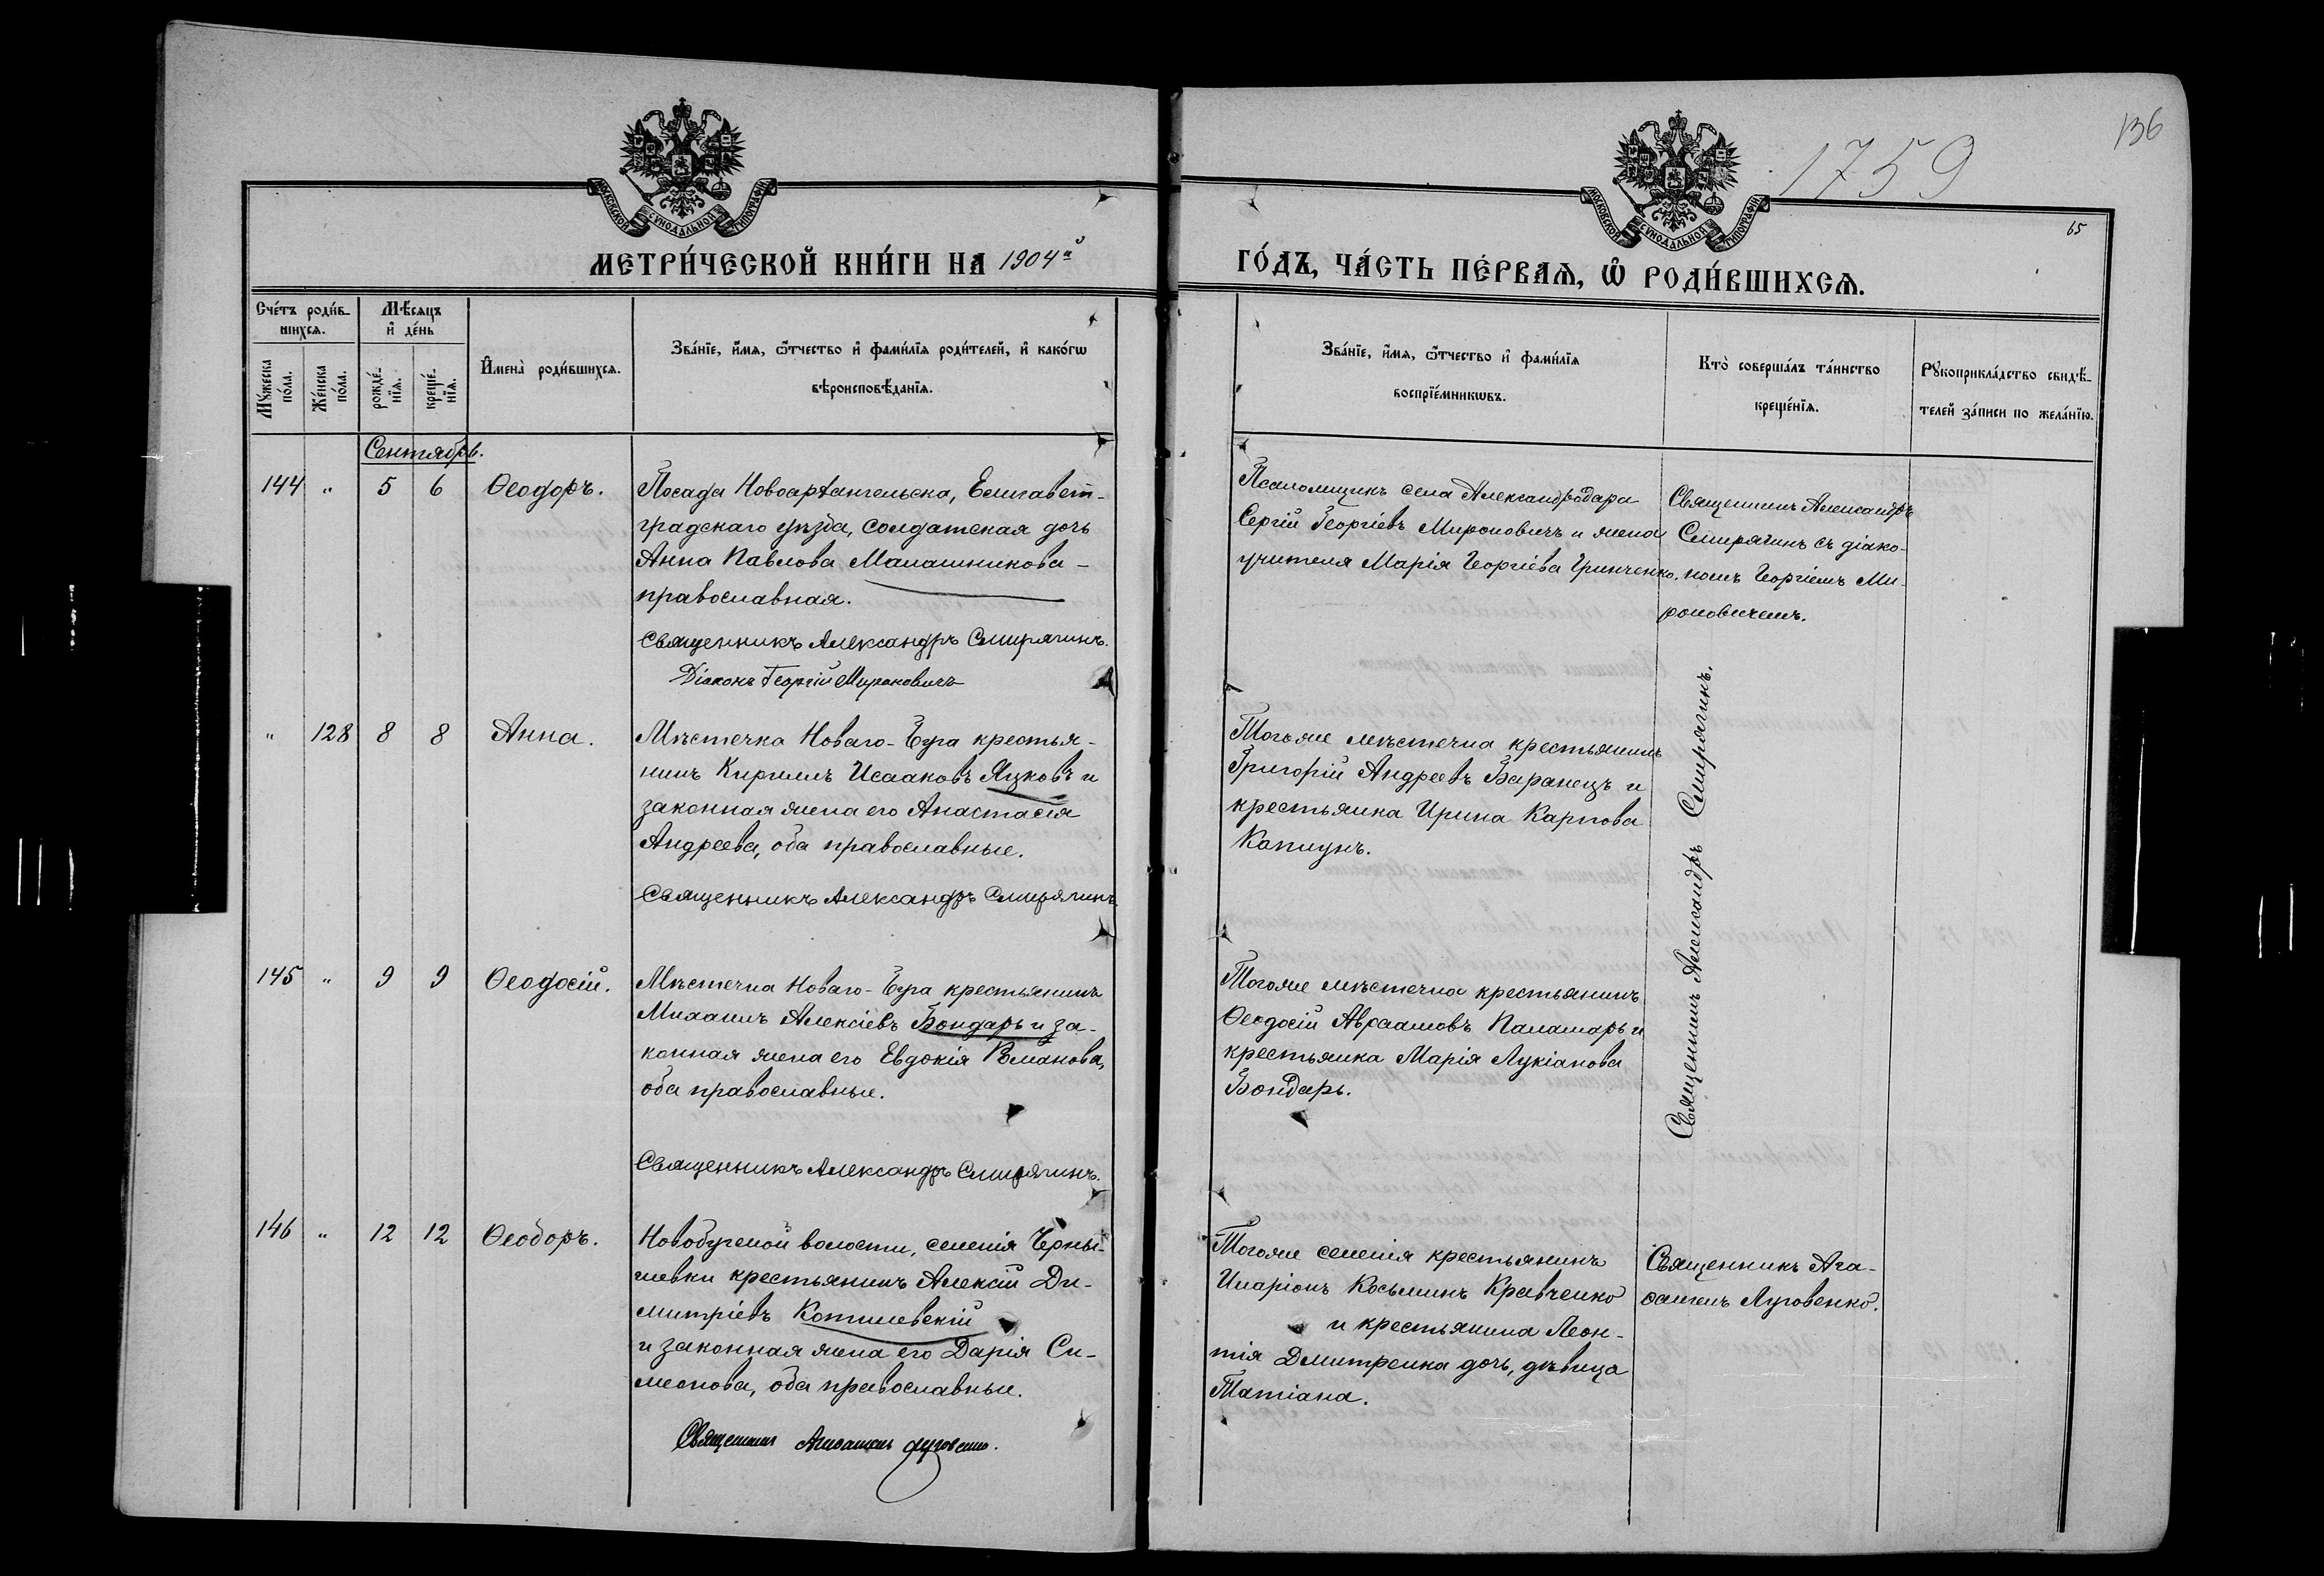 136
1759
65
МОСКОВСКОЙ СѴНОДАЛЬНОЙ ТИПОГРАФІИ
МОСКОВСКОЙ СѴНОДАЛЬНОЙ ТИПОГРАФІИ
МЕТРИ́ЧЕСКОЙ КНИ́ГИ НА 1904й
ГО́ДЪ, ЧА́СТЬ ПЕ́РВАѦ, Ѿ РОДИ́ВШИХСѦ.
Сче́тъ роди́в-
шихсѧ.
Мѣ́сѧцъ
и҆ де́нь
Мꙋ́жеска по́ла.
Же́нска по́ла.
рожде́-
нїѧ.
креще́-
нїѧ.
И҆мена̀ роди́вшихсѧ.
Зва́нїе, и҆́мѧ, ѻ҆́тчество и҆ фами́лїѧ роди́телей, и҆ како́гѡ
вѣроисповѣ́данїѧ.
Зва́нїе, и҆́мѧ, ѻ҆́тчество и҆ фами́лїѧ
воспрїе́мникѡвъ.
Кто̀ соверша́лъ та́инство
креще́нїѧ.
Рꙋкоприкла́дство свидѣ́-
телей за́писи по жела́нїю.
Сентябрь.
144 " 5 6 Ѳеодоръ.
Посада Новоархангельска, Елисавет-
градскаго уѣзда, солдатская дочь
Анна Павлова Малашникова -
православная.
Священникъ Александръ Смирягинъ.
Діаконъ Георгій Мироновичъ
Псаломщикъ села Александродара
Сергій Георгіевъ Мироновичъ и жена
учителя Марія Георгіева Гринченко.
Священникъ Александръ
Смирягинъ съ діако-
номъ Георгіемъ Ми-
роновичемъ.
" 128 8 8 Анна.
Мѣстечка Новаго-Буга крестья-
нинъ Кириллъ Исааковъ Яцковъ и
законная жена его Анастасія
Андреева, оба православные.
Священникъ Александръ Смирягинъ.
Тогоже мѣстечка крестьянинъ
Григорій Андреевъ Баранецъ и
крестьянка Ирина Карпова
Капцунъ.
Священникъ Александръ Смирягинъ.
145 " 9 9 Ѳеодосій.
Мѣстечка Новаго-Буга крестьянинъ
Михаилъ Алексіевъ Бондарь и за-
конная жена его Евдокія Романова,
оба православные.
Священникъ Александръ Смирягинъ.
Тогоже мѣстечка крестьянинъ
Ѳеодосій Авраамовъ Паламарь и
крестьянка Марія Лукіанова
Бондарь.
146 " 12 12 Ѳеодоръ.
Новобугской волости, селенія Черны-
шевки крестьянинъ Алексій Ди-
митріевъ Котлевскій
и законная жена его Дарія Си-
меонова, оба православные.
Священникъ Агаѳангелъ Луговенко.
Тогоже селенія крестьянинъ
Иларіонъ Косьминъ Кравченко
и крестьянина Леон-
тія Дмитренка дочь, дѣвица
Татіана.
Священникъ Ага-
ѳангелъ Луговенко.